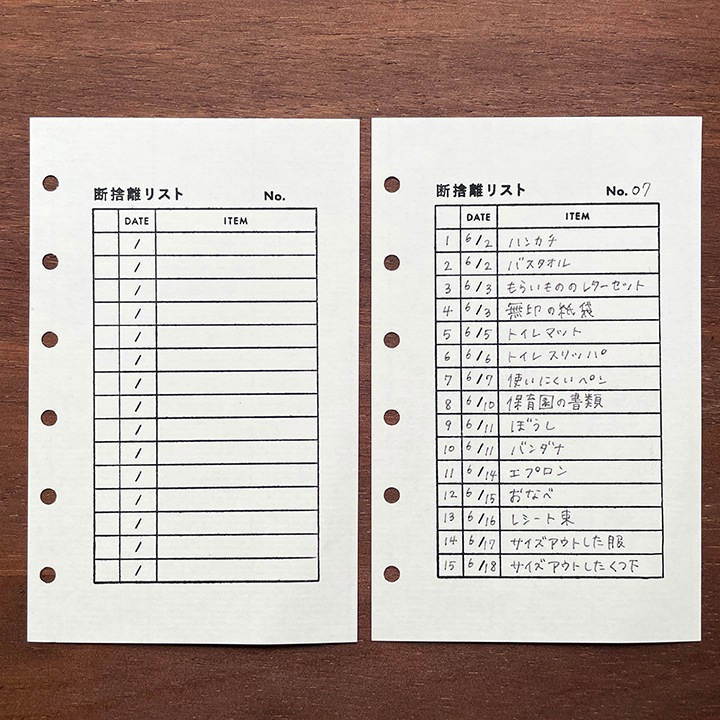 断捨離リスト No.
DATE ITEM
/
/
/
/
/
/
/
/
/
/
/
/
/
/
/
断捨離リスト No. 07
DATE ITEM
1 6/2 ハンカチ
2 6/2 バスタオル
3 6/3 もらいもののレターセット
4 6/3 無印の紙袋
5 6/5 トイレマット
6 6/6 トイレスリッパ
7 6/7 使いにくいペン
8 6/10 保育園の書類
9 6/11 ぼうし
10 6/11 バンダナ
11 6/14 エプロン
12 6/15 おなべ
13 6/16 レシート束
14 6/17 サイズアウトした服
15 6/18 サイズアウトしたくつ下